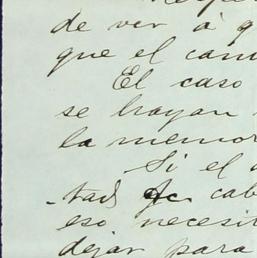 de ver á q
que el cam
El caso
se hayan
la memor
Si el
-tad de cab
eso necesit
dejar para